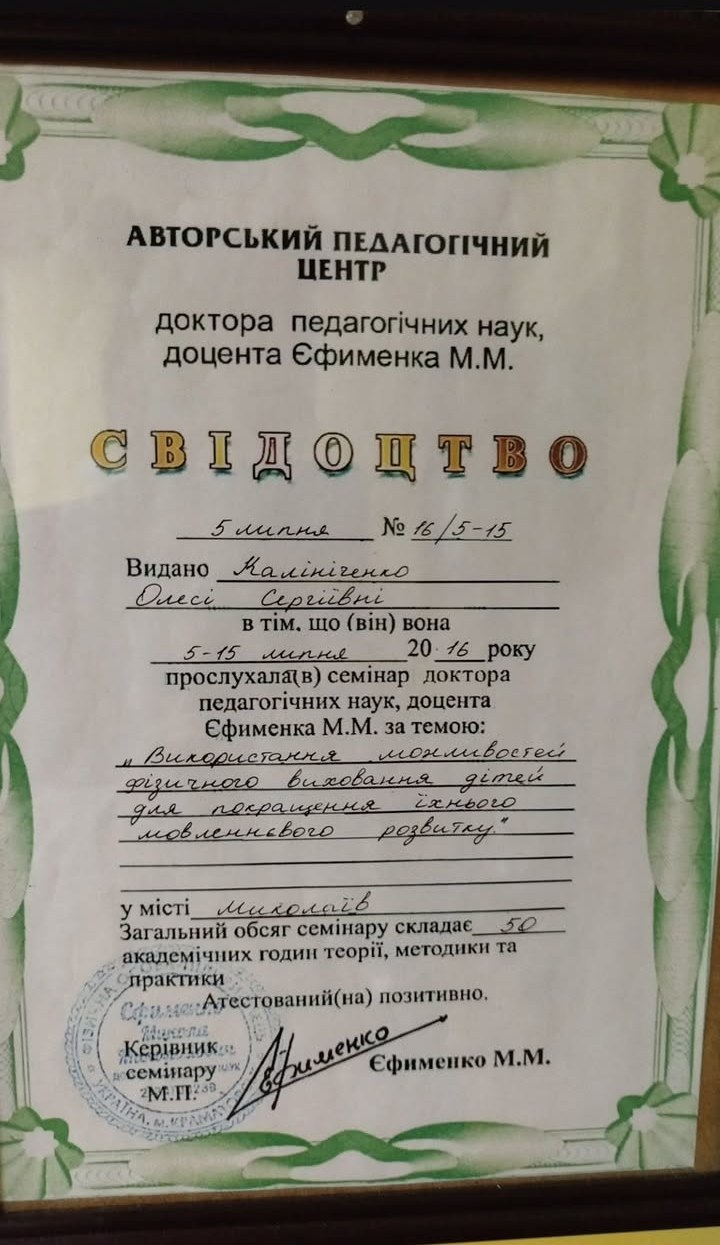 АВТОРСЬКИЙ ПЕДАГОГІЧНИЙ
ЦЕНТР
доктора педагогічних наук,
доцента Єфименка М.М.
СВІДОЦТВО
5 липня № 16/5-15
Видано Калініченко
Олесі Сергіївні
в тім, що (він) вона
5-15 липня 20 16 року
прослухала(в) семінар доктора
педагогічних наук, доцента
Єфименка М.М. за темою:
„Використання можливостей
фізичного виховання дітей
для покращення їхнього
мовленнєвого розвитку."
у місті Миколаїв
Загальний обсяг семінару складає 50
академічних годин теорії, методики та
практики
Атестований(на) позитивно.
Керівник
семінару
М.П.
Єфименко
Єфименко М.М.
Єфименко
Микола
УКРАЇНА, м.